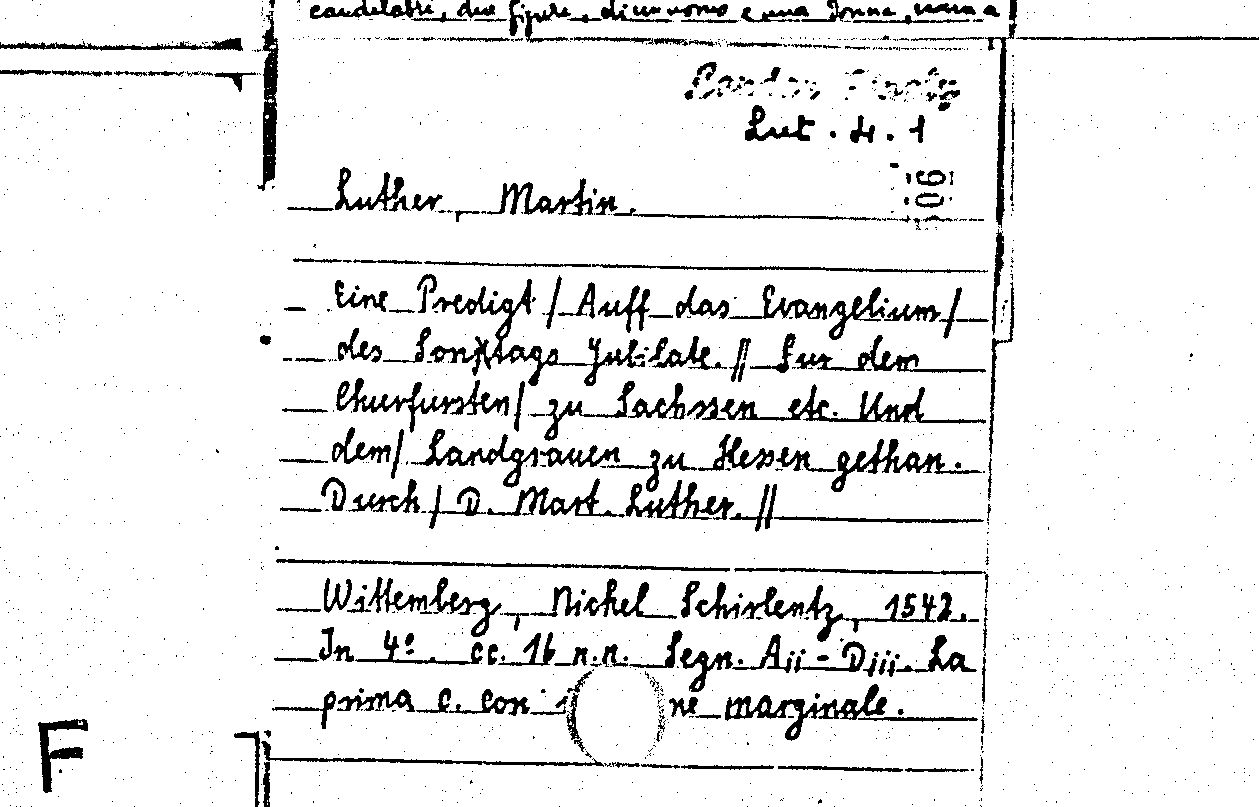 candelabri, due figure, di un uomo e una donna,
Lut. 4. 1
Luther, Martin.
Eine Predigt / Auff das Evangelium /
des Sontags Jubilate. // Fur dem
Churfursten / zu Sachssen etc. Und
dem / Landgrauen zu Hessen gethan.
Durch / D. Mart. Luther. //
Wittemberg, Nickel Schirlentz, 1542.
In 4º. cc. 16 n.n. Segn. Aii - Diii. La
prima c. con ne marginale.
F